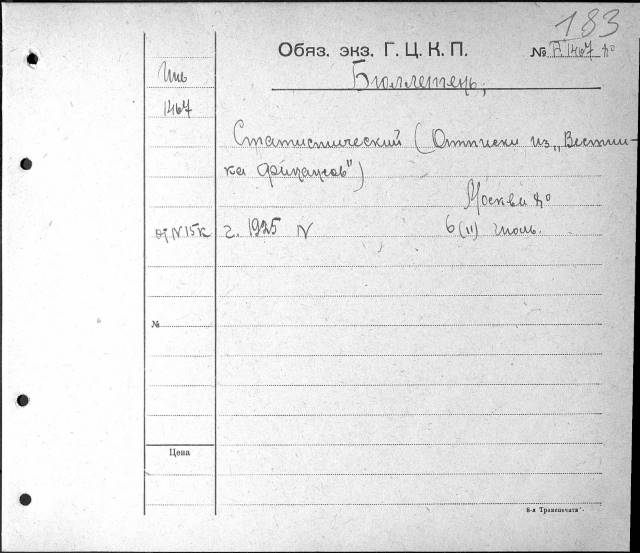 183
Обяз. экз. Г. Ц. К. П.
№ 1467
Бюллетень,
1467
Статистический (Оттиски из „Вестни-
ка финансов")
Москва
г. 1925 N 6(11) июль.
№
Цена
6-я Транспечати".